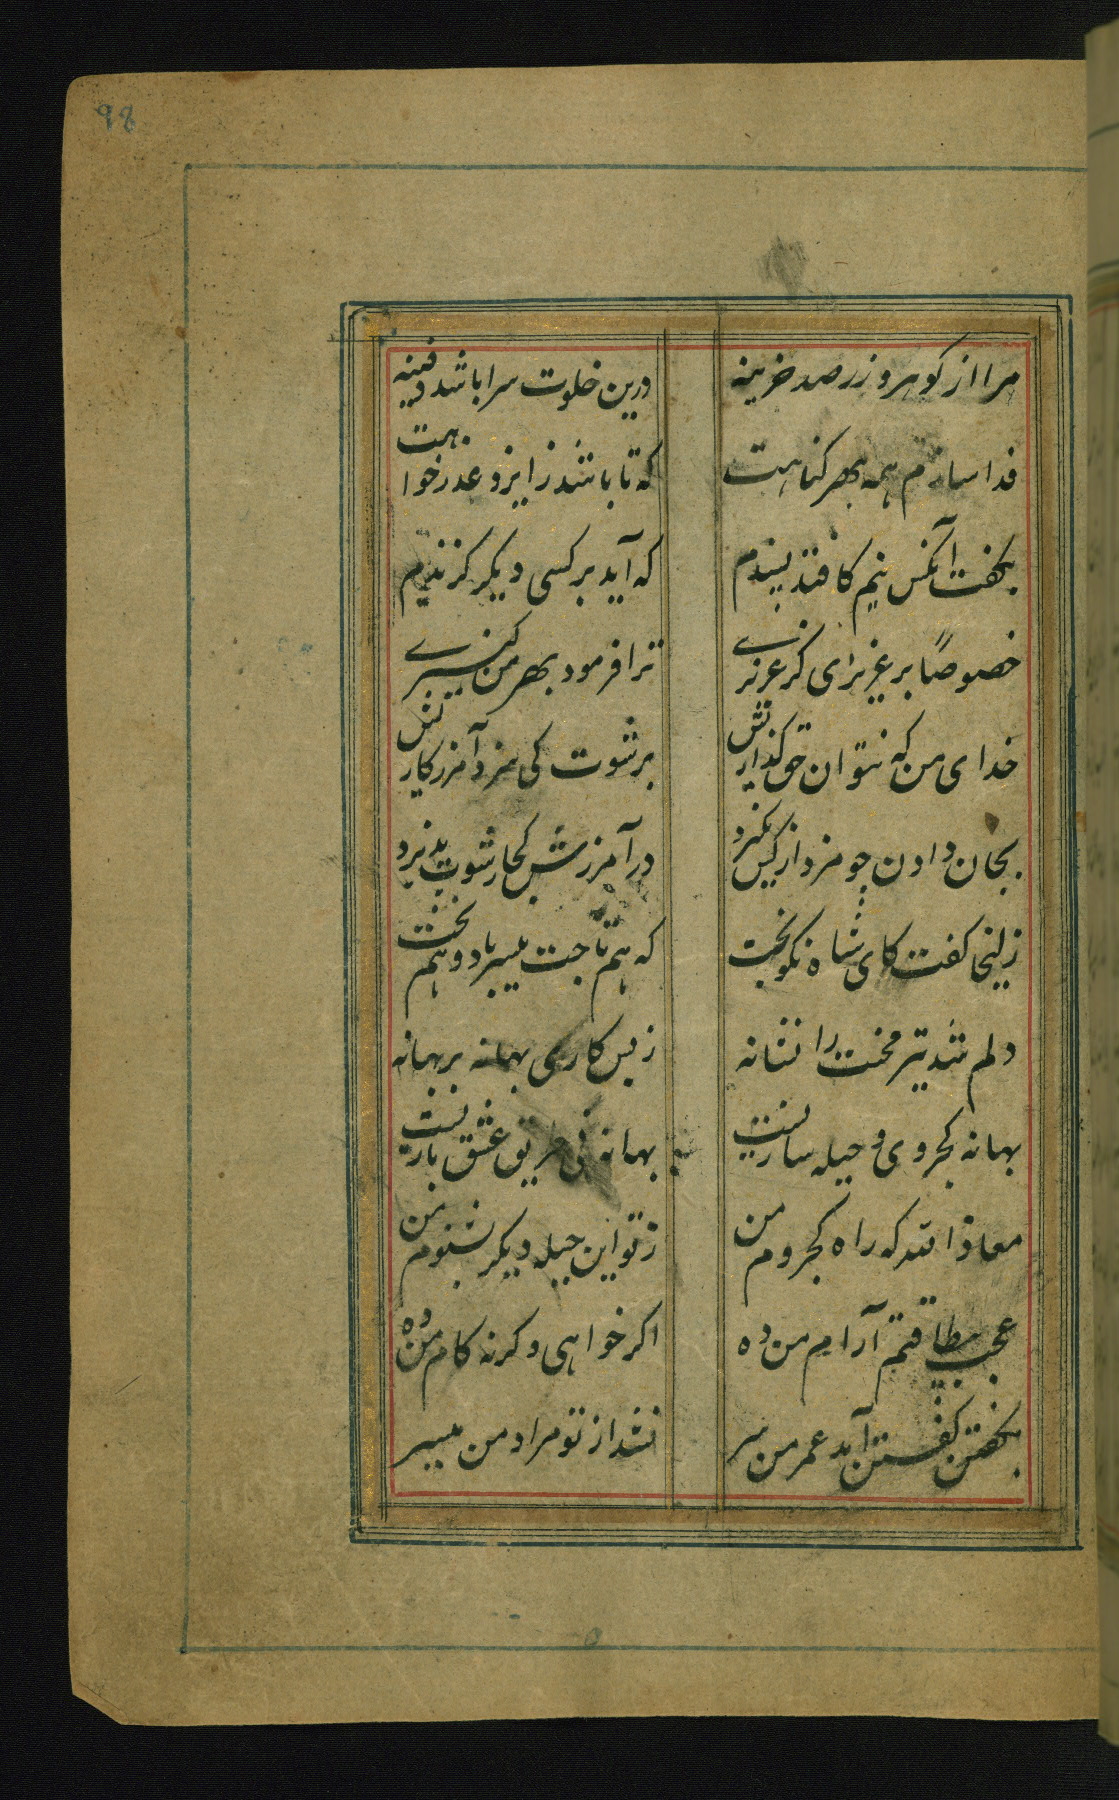 98
مرا از کوهر و زر صد خزینه درین خلوت سرا باشد دفینه
فدا سازم همه بهر کناهت که تا باشد ز ایزد عذرخواهت
بکفت آنکس نیم کافتد پسندم که آید بر کسی دیکر کزندم
خصوصاً بر عزیزی کز عزیزی ترا فرمود بهر من کنیزی
خدای من که نتوان حق کذاریش برشوت کی سزد آمرزکاریش
بجان دادن چو مزد از کس نکیرد در آمرزش کجا رشوت پذیرد
زلیخا کفت کای شاه نکوبخت که هم تاجت میسر باد و هم تخت
دلم شد تیر محنت را نشانه ز بس کاری بهانه بر بهانه
بهانه کجروی و حیله سازیست بهانه نی طریق عشق بازیست
معاذ الله که راه کجروم من ز تو این حیله دیکر نشنوم من
عجب بیطاقتم آرام من ده اکر خواهی وکرنه کام من ده
بکفتن کفتن آمد عمر من سر نشد از تو مراد من میسر